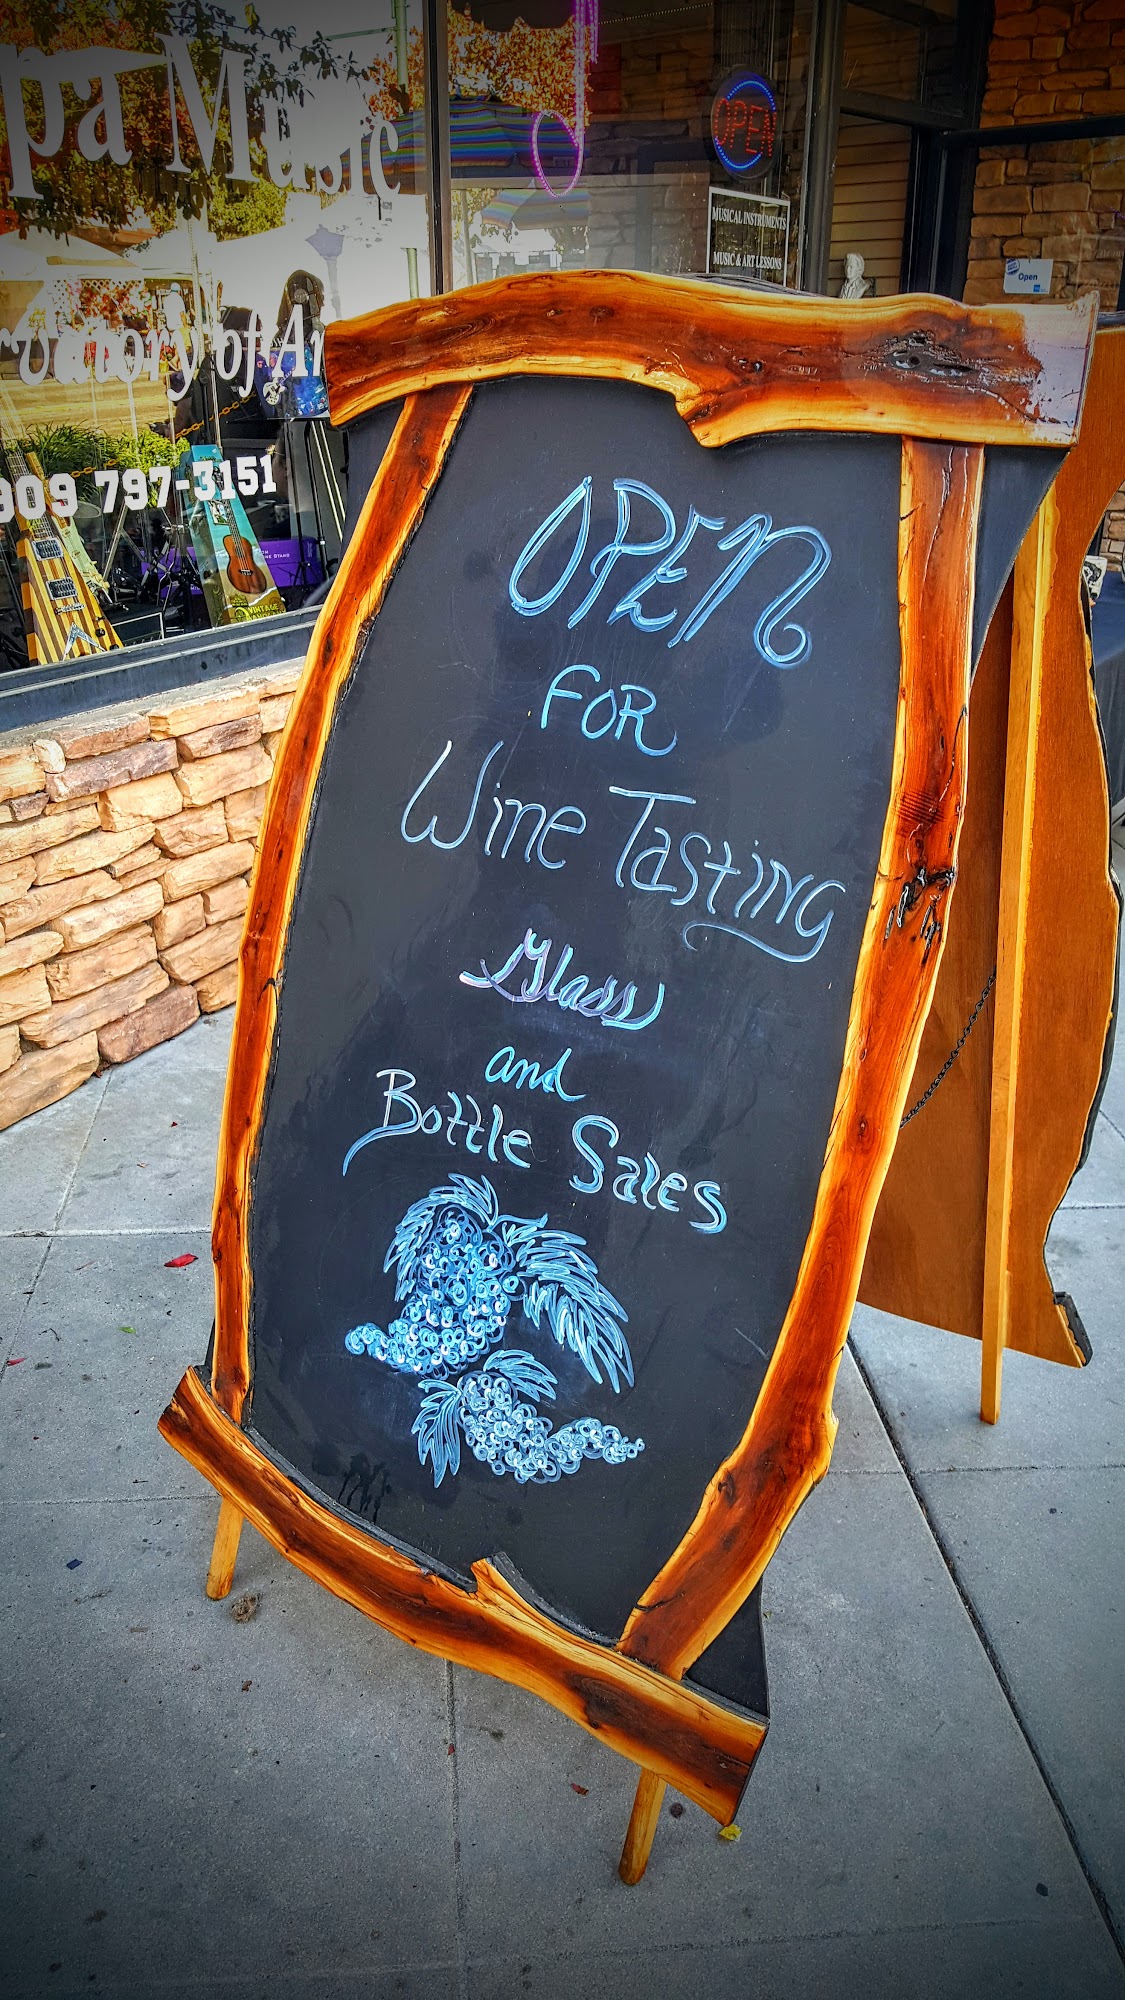 pa Music
OPEN
MUSICAL INSTRUMENTS
MUSIC & ART LESSONS
Open
rvatory of Ar
909 797-3151
OPEN
FOR
Wine Tasting
Glass
and
Bottle Sales